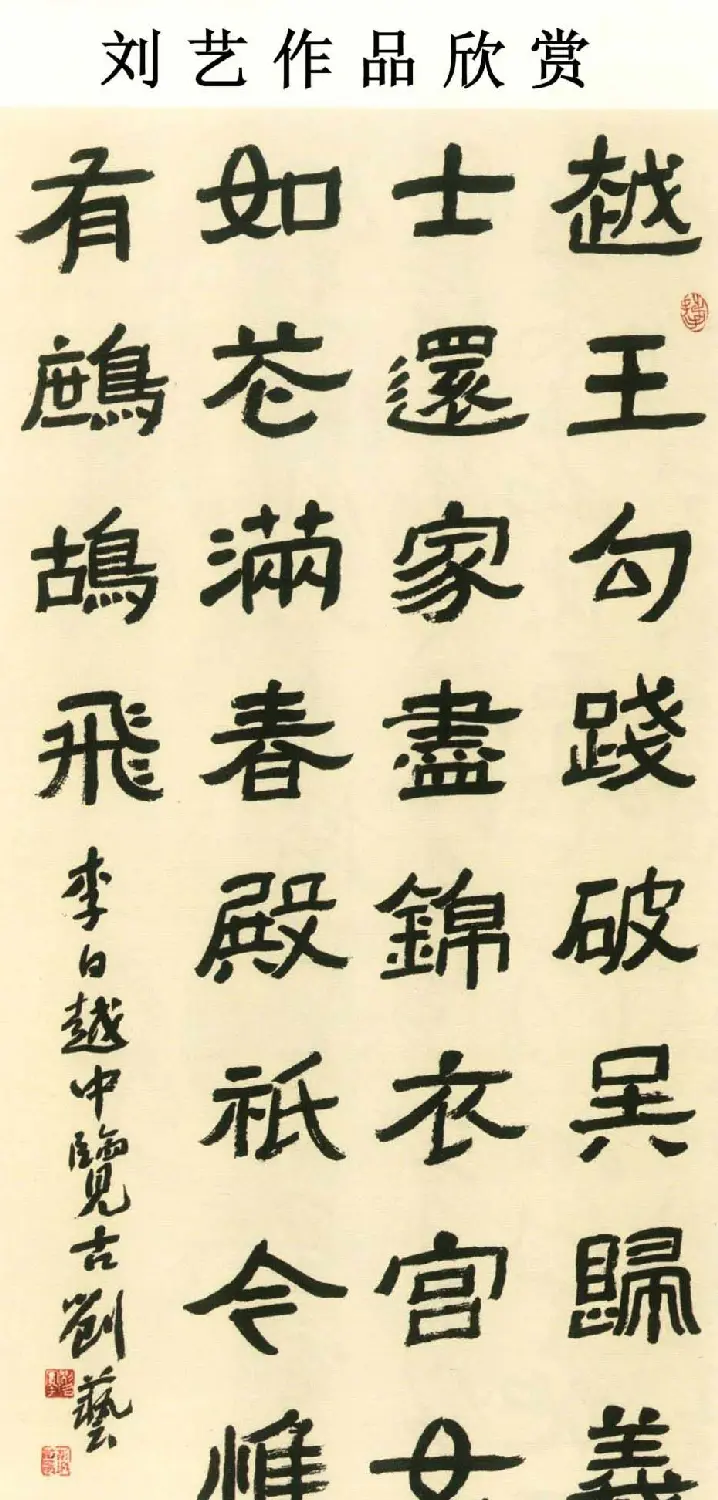 刘艺作品欣赏
越王勾踐破吴歸義
士還家盡錦衣宫女
如花滿春殿祇今惟
有鷓鴣飛
李白越中覽古劉藝